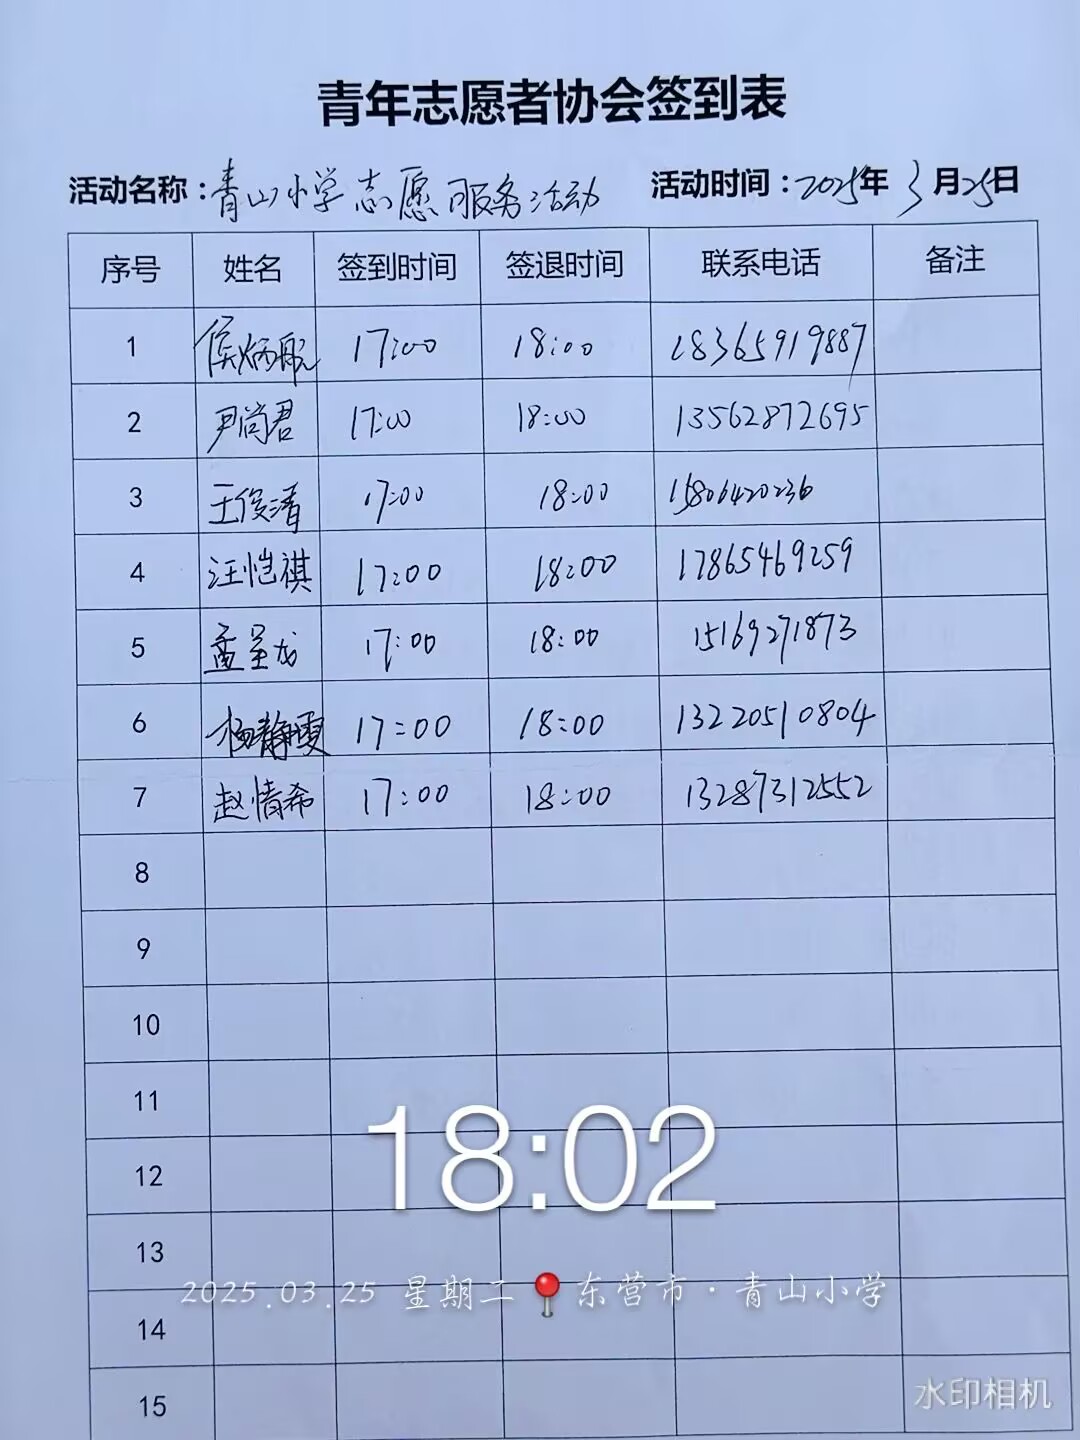 青年志愿者协会签到表
活动名称：青山小学志愿服务活动 活动时间：2025年3月25日
序号 姓名 签到时间 签退时间 联系电话 备注
1 侯炳航 17:00 18:00 18365919887
2 尹尚君 17:00 18:00 13562872695
3 王俊清 17:00 18:00 15806420236
4 汪恺祺 17:00 18:00 17865469259
5 孟呈龙 17:00 18:00 15169271873
6 杨静雯 17:00 18:00 13220510804
7 赵情希 17:00 18:00 13287312552
8
9
10
11
18:02
12
13
2025.03.25 星期二 东营市·青山小学
14
15
水印相机